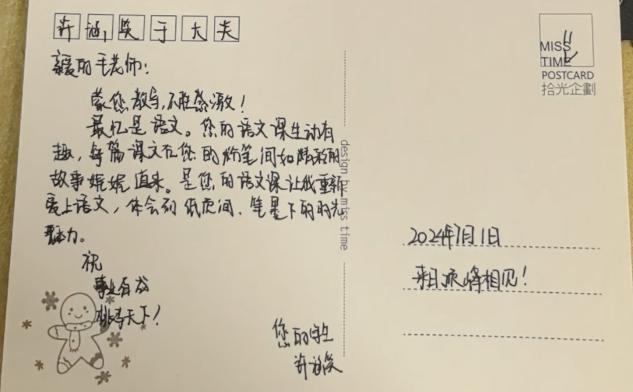 许涵笑于大夫
亲爱的毛老师：
蒙您教导，不胜感激！
最忆是语文。您的语文课生动有
趣，每篇课文在您的粉笔间如精彩的
故事娓娓道来。是您的语文课让我重新
爱上语文，体会到纸页间、笔墨下的时光
魅力。
祝
事业有成
桃李天下！
您的学生
许涵笑
design by miss time
MISS
TIME
POSTCARD
拾光企劃
2024年7月1日
来日派将相见！